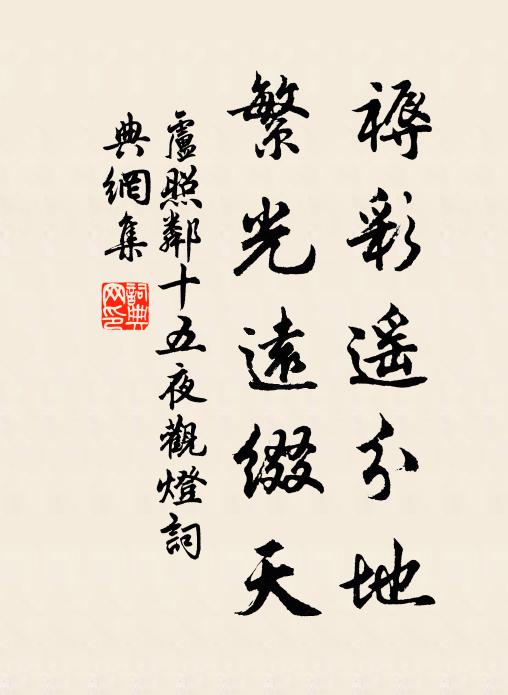 褥彩遥分地
繁光遠綴天
盧照鄰十五夜觀燈詞
典網集
詞典
网印